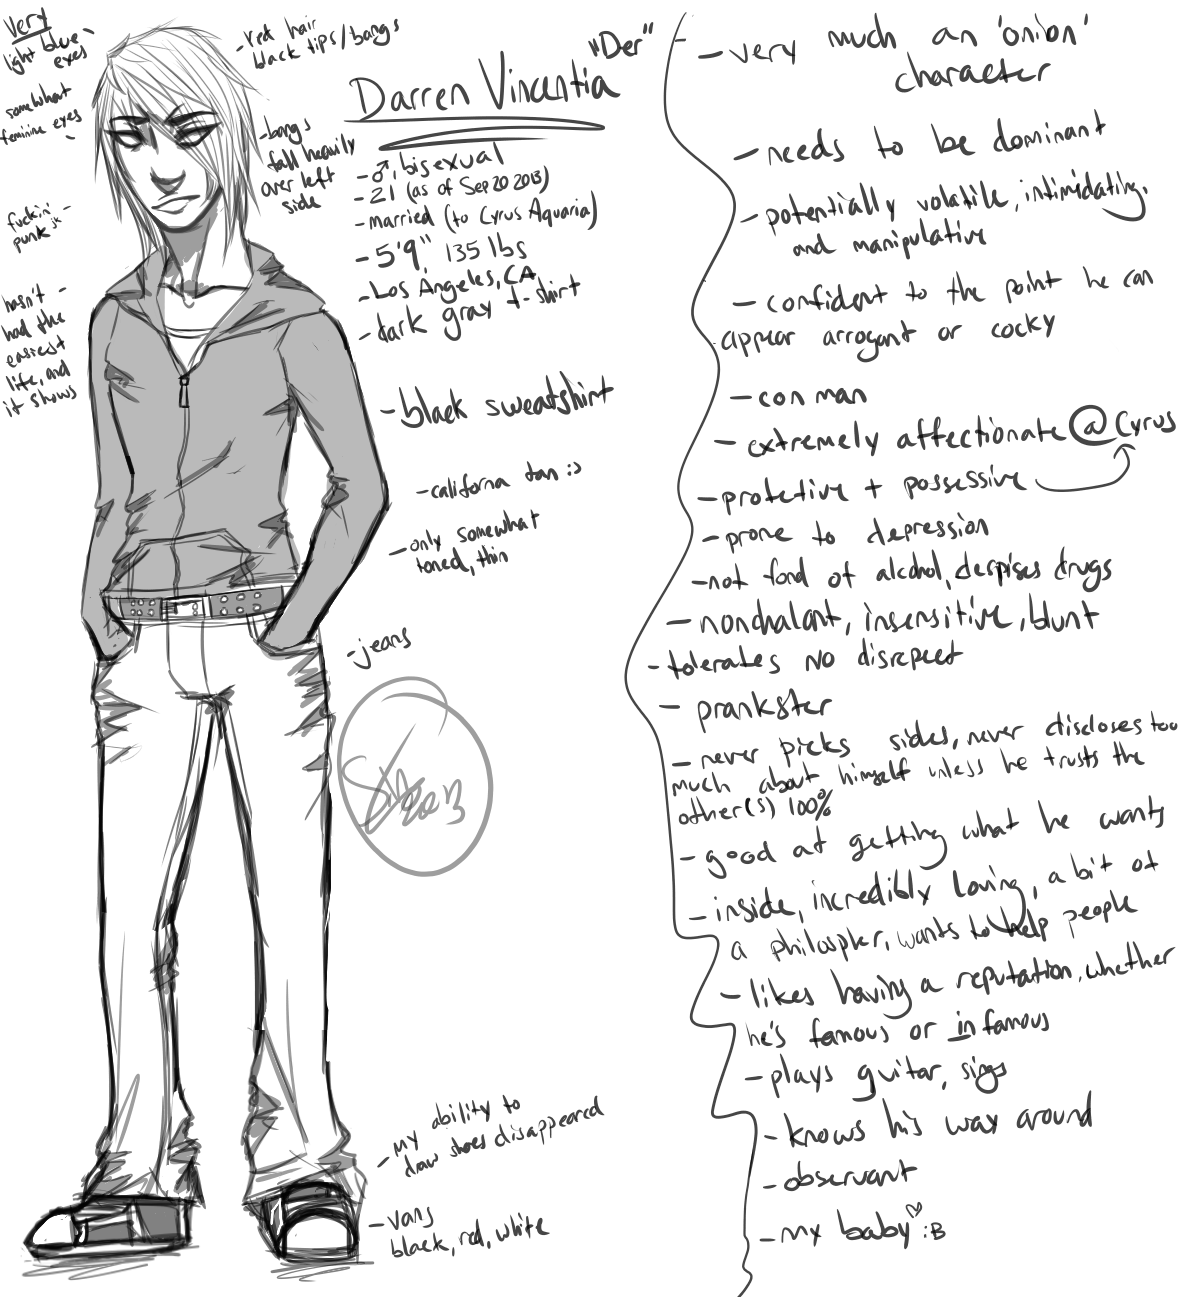 Very
light blue -
eyes
somewhat
feminine eyes
-
fuckin' -
punk jk
hasn't -
had the
easiest
life, and
it shows
- red hair
black tips/bangs
- bangs
fall heavily
over left
side
"Der"
Darren Vincentia
- ♂, bisexual
- 21 (as of Sep 20 2013)
- married (to Cyrus Aquaria)
- 5'9" 135 lbs
- Los Angeles, CA
- dark gray t-shirt
- black sweatshirt
- california tan :)
- only somewhat
toned, thin
- jeans
2013
- my ability to
draw shoes disappeared
- vans
black, red, white
- very much an 'onion'
character
- needs to be dominant
- potentially volatile, intimidating,
and manipulative
- confident to the point he can
appear arrogant or cocky
- con man
- extremely affectionate @ Cyrus
- protetive + possessive
- prone to depression
- not fond of alcohol, despises drugs
- nonchalant, insensitive, blunt
- tolerates NO disrepect
- prankster
- never picks sides, never discloses too
much about himself unless he trusts the
other(s) 100%
- good at getting what he wants
- inside, incredibly loving, a bit of
a philospher, wants to help people
- likes having a reputation, whether
he's famous or infamous
- plays guitar, sings
- knows his way around
- observant
- my baby ♡ :B